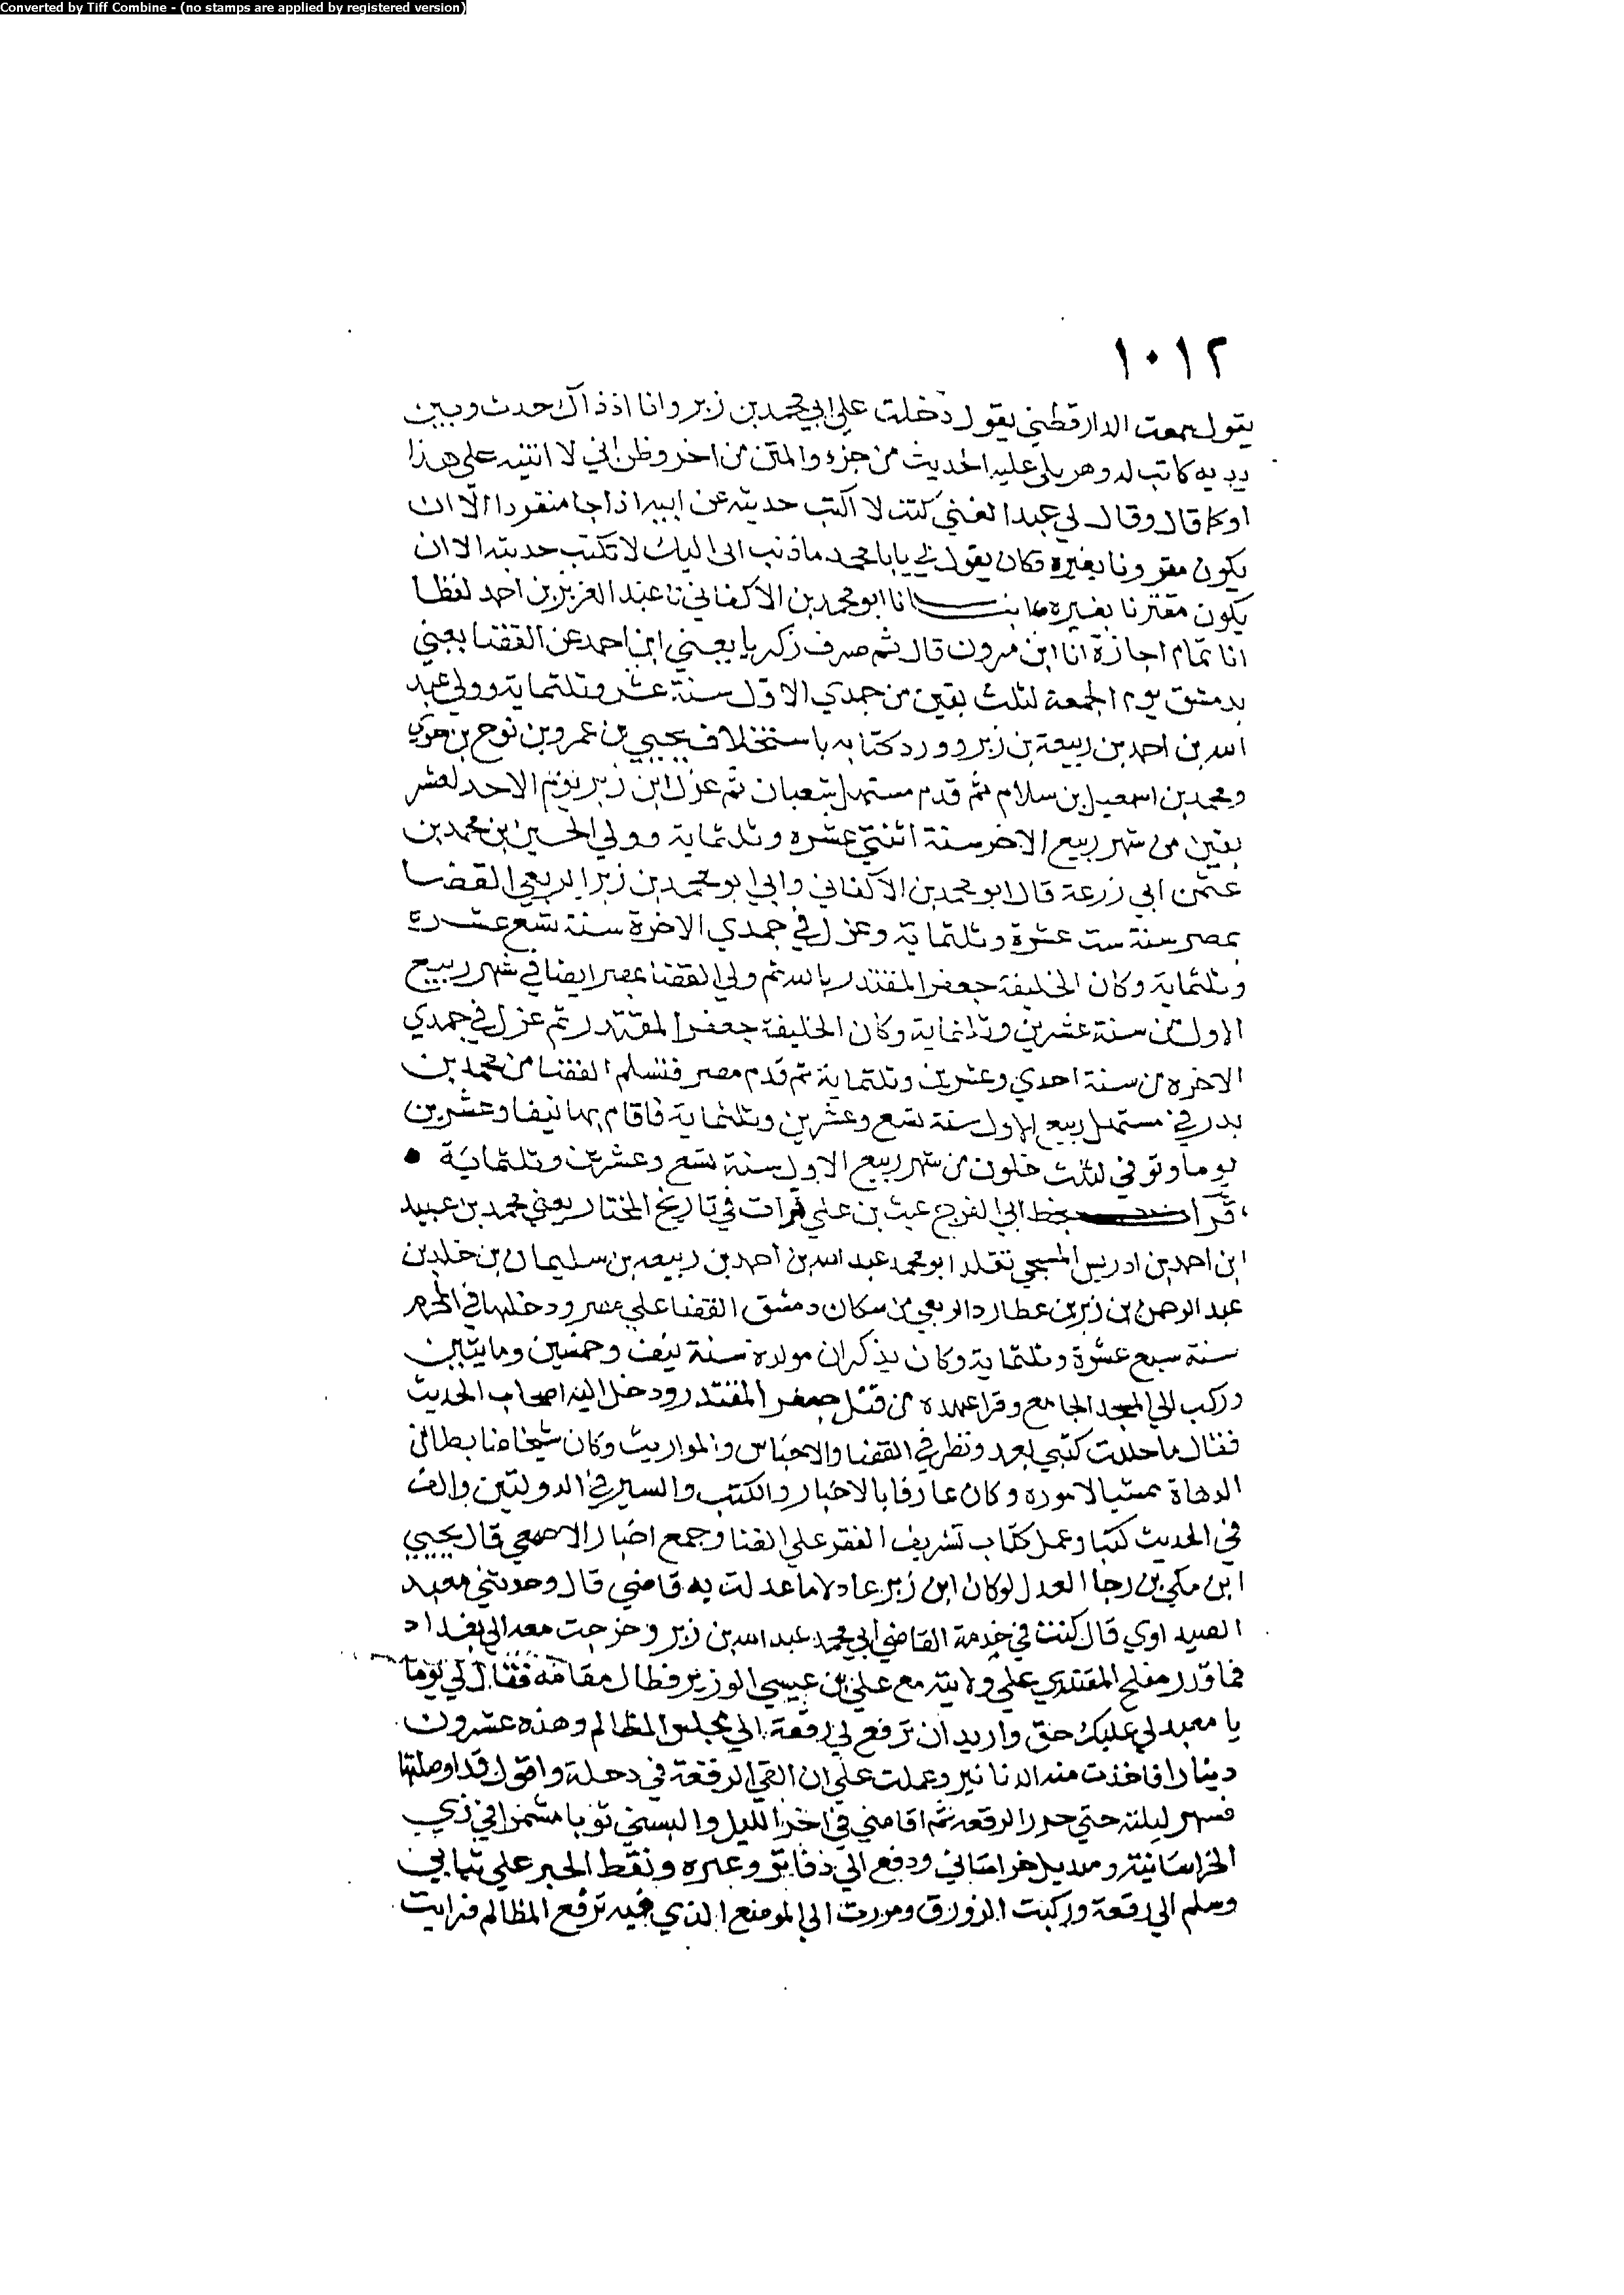 Converted by Tiff Combine - (no stamps are applied by registered version)
١٠١٢
يقول سمعت الدارقطني يقول دخلت علي ابي محمد بن زبر وانا اذ ذاك حدث وبين
يديه كاتب له وهو يملي عليه الحديث من جزء والمتن من اخر وظن اني لا انتبه علي هذا
او كما قال وقال لي عبد الغني كنت لا اكتب حديثه عن ابيه اذا جا منفردا الا ان
يكون مقرونا بغيره فكان يقول لي يا با محمد ما ذنب ابي اليك لا تكتب حديثه الا ان
يكون مقترنا بغيره انا ابو محمد بن الاكفاني نا عبد العزيز بن احمد لفظا
انا تمام اجازة انا ابن مرون قال ثم صرف زكريا يعني ابن احمد عن القضا يعني
بدمشق يوم الجمعة لثلث بقين من جمدي الاول سنة عشر وثلثماية وولي عبد
الله بن احمد بن ربيعة بن زبر وورد كتابه باستخلاف يحيي بن عمرو بن نوح بن حوي
ومحمد بن اسمعيل بن سلام ثم قدم مستهل شعبان ثم عزل ابن زبر يوم الاحد لعشر
بقين من شهر ربيع الاخر سنة اثنتي عشره وثلثماية وولي الحسين بن محمد بن
عثمن ابي زرعة قال ابو محمد بن الاكفاني ولي ابو محمد بن زبر الربعي القضا
بمصر سنة ست عشرة وثلثماية وعزل في جمدي الاخرة سنة تسع عشره
وثلثماية وكان الخليفة جعفر المقتدر بالله ثم ولي القضا بمصر ايضا في شهر ربيع
الاول من سنة عشرين وثلثماية وكان الخليفة جعفر المقتدر ثم عزل في جمدي
الاخره من سنة احدي وعشرين وثلثماية ثم قدم مصر فتسلم القضا من محمد بن
بدر في مستهل ربيع الاول سنة تسع وعشرين وثلثماية فاقام بها نيفا وعشرين
يوما وتوفي لثلث خلون من شهر ربيع الاول سنة تسع وعشرين وثلثماية •
قرات بخط ابي الفرج غيث بن علي قرات في تاريخ المختار يعني محمد بن عبيد
ابن احمد بن ادريس المسبحي تقلد ابو محمد عبد الله بن احمد بن ربيعه بن سليمان بن خلد بن
عبد الرحمن بن زبر بن عطارد الربعي من سكان دمشق القضا علي مصر ودخلها في المحرم
سنة سبع عشرة وثلثماية وكان يذكر ان مولده سنة نيف وخمسين ومايتين
وركب الي المسجد الجامع وقرا عهده من قبل جعفر المقتدر ودخل اليه اصحاب الحديث
فقال ما حللت كتبي بعد ونظر في القضا والاحباس والمواريث وكان شيخا ضابطا من
الدهاة ممشيا لاموره وكان عارفا بالاخبار والكتب والسير في الدولتين والف
في الحديث كتبا وعمل كتاب تشريف الفقر علي الغنا وجمع اخبار الاصمعي قال يحيي
ابن مكي بن رجا العدل لو كان ابن زبر عادلا ما عدلت به قاضي قال وحدثني معبد
الصيداوي قال كنت في خدمة القاضي ابي محمد عبد الله بن زبر وخرجت معه الي بغداد
فما قدر مفلح المقتدري علي ولايته مع علي بن عيسي الوزير فطال مقامه فقال لي يوما
يا معبد لي عليك حق واريد ان ترفع لي رقعة الي مجلس المظالم وهذه عشرون
دينارا فاخذت منه الدنانير وعملت علي ان القي الرقعة في دجلة واقول قد اوصلتها
فسهر ليلته حتي حرر الرقعه ثم اقامني في اخر الليل والبسني ثوبا مشمرا في زي
الخراسانية ومنديل خراساني ودفع الي دفاتر وغيره ونقط الحبر علي ثيابي
وسلم الي رقعة وركبت الزورق ومررت الي الموضع الذي فيه ترفع المظالم فرايت